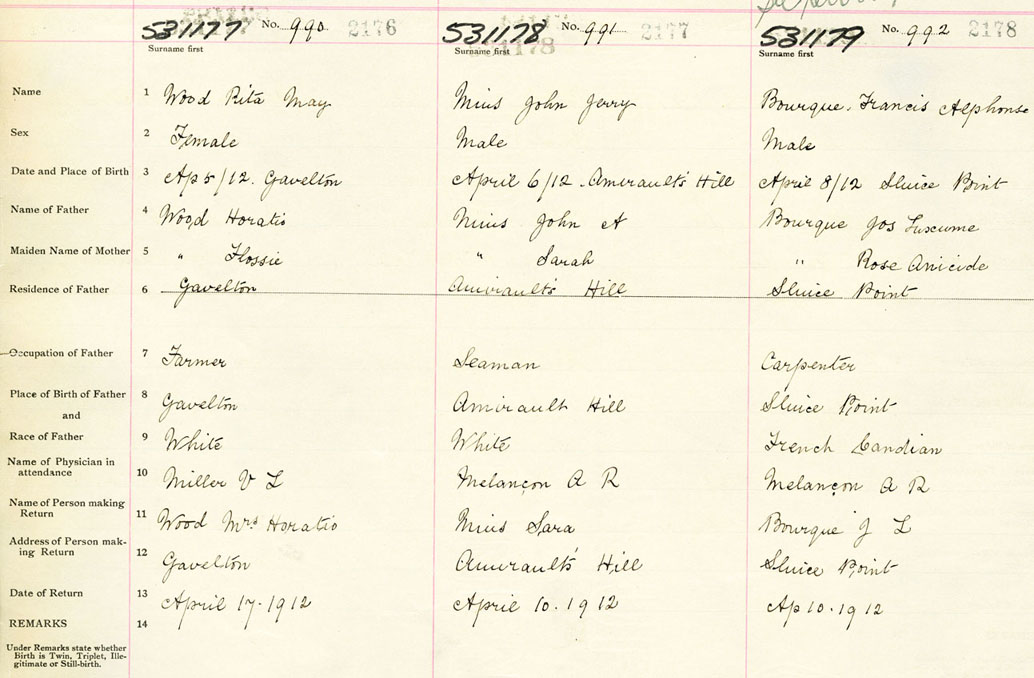 531177 No. 990 2176 531178 No. 991 2177 531179 No. 992 2178
Surname first Surname first Surname first
Name 1 Wood Rita May Mius John Jerry Bourque. Francis Alphonse
Sex 2 Female Male Male
Date and Place of Birth 3 Ap 5/12. Gavelton April 6/12. Amirault's Hill April 8/12 Sluice Point
Name of Father 4 Wood Horatio Mius John A Bourque Jos
Maiden Name of Mother 5 " Flossie " Sarah " Rose
Residence of Father 6 Gavelton Amirault's Hill Sluice Point
Occupation of Father 7 Farmer Seaman Carpenter
Place of Birth of Father 8 Gavelton Amirault Hill Sluice Point
and
Race of Father 9 White White French Candian
Name of Physician in
attendance 10 Miller V L Melançon A R Melançon A R
Name of Person making
Return 11 Wood Mrs Horatio Mius Sara Bourque J L
Address of Person mak-
ing Return 12 Gavelton Amirault's Hill Sluice Point
Date of Return 13 April 17-1912 April 10.1912 Ap 10.1912
REMARKS 14
Under Remarks state whether
Birth is Twin, Triplet, Ille-
gitimate or Still-birth.